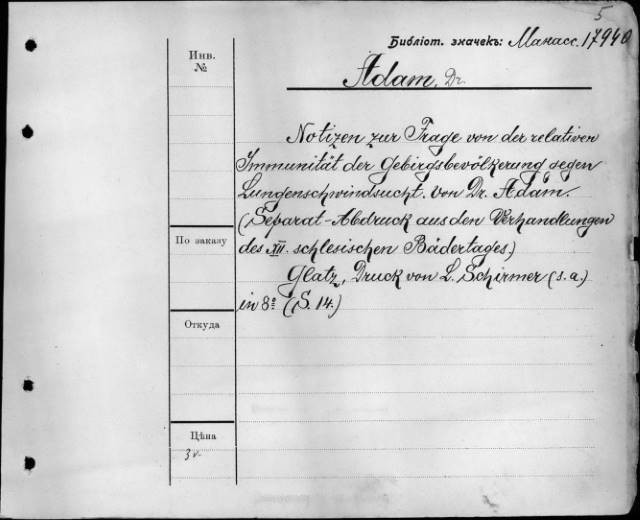 5
Библіот. значекъ: Манасс. 17940
Инв.
№
Adam, Dr.
Notizen zur Frage von der relativen
Immunität der Gebirgsbevölkerung gegen
Lungenschwindsucht. von Dr. Adam.
(Separat-Abdruck aus den Verhandlungen
des XII. schlesischen Bädertages.)
Glatz, Druck von L. Schirmer (s. a.)
in 8º (S. 14.)
По заказу
Откуда
Цѣна